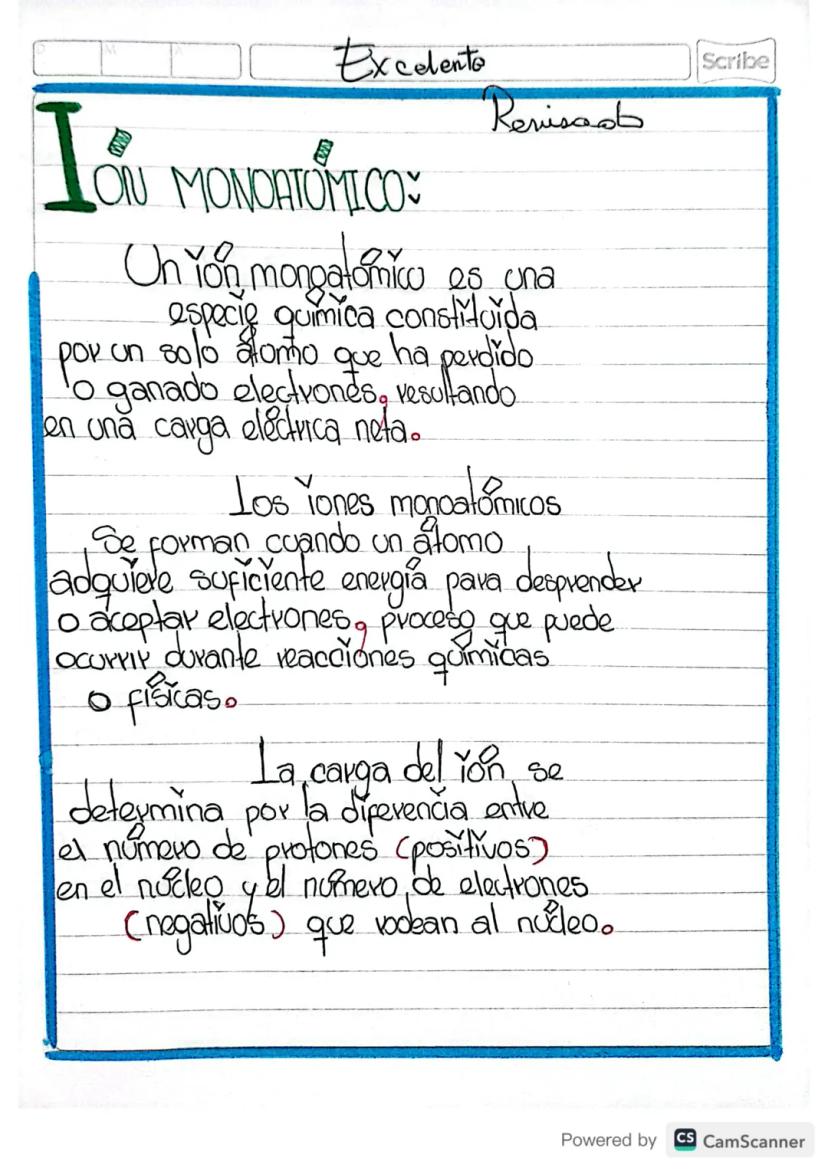 Excelente
Scribe
Revisado
IÓN MONOATÓMICO:
Un ión monoatómico es una
especie química constituida
por un solo átomo que ha perdido
o ganado electrones, resultando
en una carga eléctrica neta.
Los iones monoatómicos
Se forman cuando un átomo
adquiere suficiente energía para desprender
o aceptar electrones, proceso que puede
ocurrir durante reacciones químicas
o físicas.
La carga del ión se
determina por la diferencia entre
el número de protones (positivos)
en el núcleo y el número de electrones
(negativos) que rodean al núcleo.
Powered by CS CamScanner